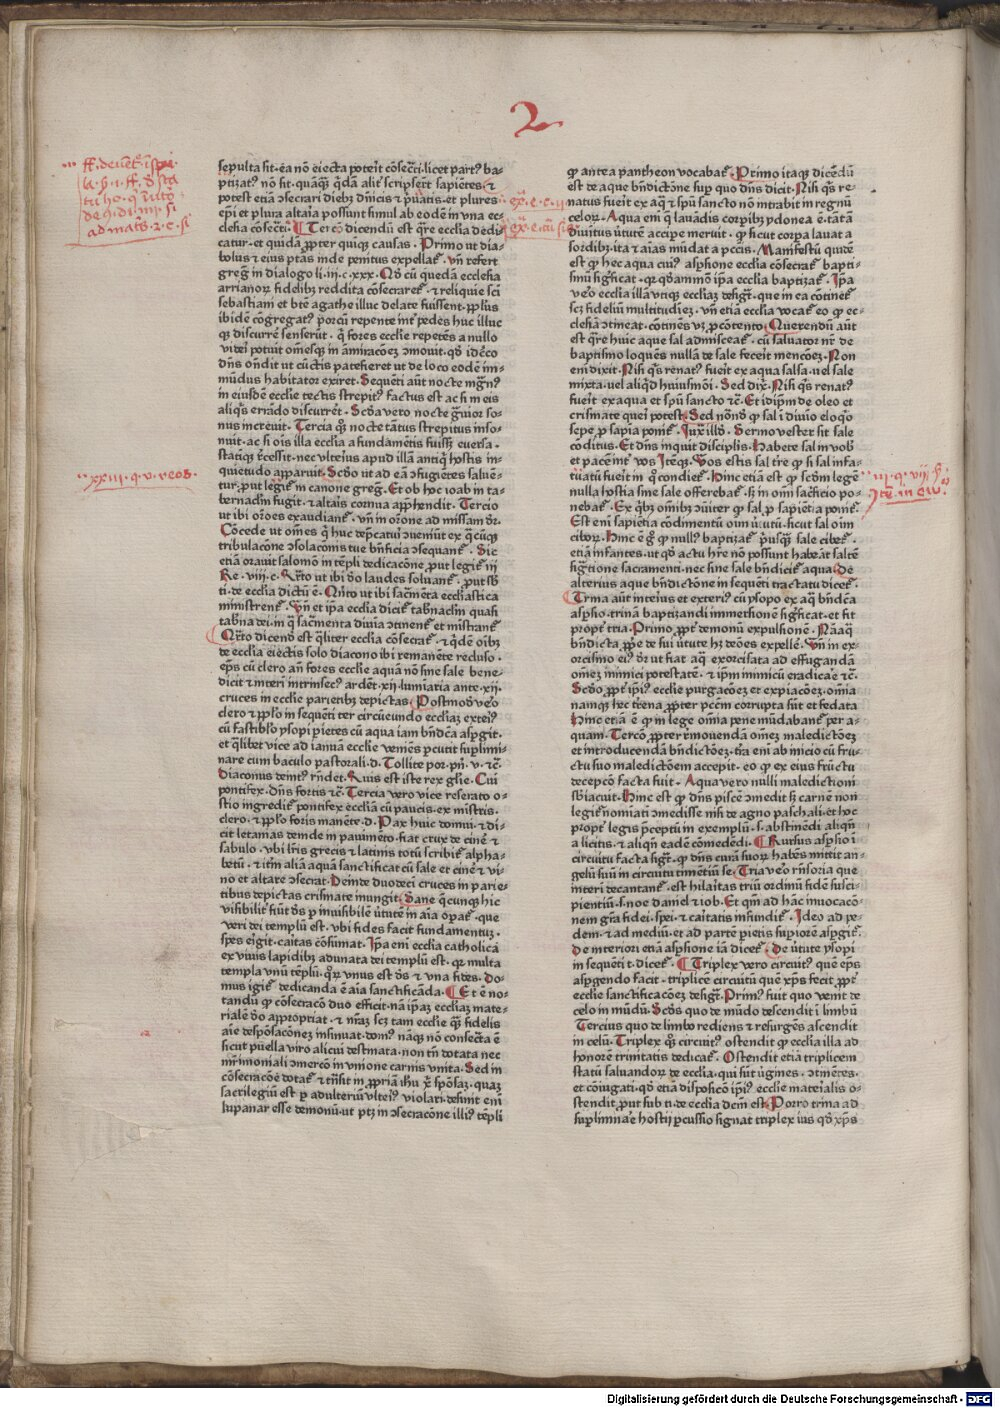 2
sepulta sit · ea nō eiecta poterit cōsecrari · licet partꝰ ba⸗
ptizatꝰ nō sit · quāq̄ꝫ q̄dā aliter scripserūt sapiētes · et
potest etiā ɔsecrari diebꝫ dn̄icis et p̄uatis · et plures
ep̄i et plura altaria possunt simul ab eodē in vna ec⸗
clesia cōsecrari Tercō dicendū est qr̄e ecclesia dedi⸗
catur · et quidā propter quinqꝫ causas · Primo ut dia⸗
bolus et eius ptās inde penitus expellatur · vn̄ refert
greg̓ in dialogo li · iii · c · xxx · Qd̓ cū quedā ecclesia
arrianoꝝ fidelibꝫ reddita cōsecraretur · et reliquie sc̄i
sebastiani et btē agathe illuc delate fuissent · pplūs
ibidē cōgregatꝰ porcū repente inter pedes huc illuc
qꝫ discurrē senserūt · q̄ fores ecclesie repetēs a nullo
videri potuit om̄esqꝫ in āmiracōeꝫ ɔmouit · qd̓ idcirco
dn̄s ondit ut cūctis patefieret ut de loco eodē im⸗
mūdus habitator exiret · Sequēti aūt nocte magnꝰ
in eiusdē ecclesie tectis strepitꝰ factus est ac si in eis
aliq̄s errādo discurrēt · Sc̄da vero nocte gr̄uior so⸗
nus increuit · Tercia q̄ꝫ nocte tātus strepitus inso⸗
nuit · ac si oīs illa ecclesia a fundamētis fuisset euersa ·
statiqꝫ recessit · nec vlterius apud illā antiqui hostis in⸗
quietudo apparuit · Scd̓o ut ad eā ɔfugiētes saluē⸗
tur · put legit̄ in canone greg̓ · Et ob hoc ioab in ta⸗
bernaclm̄ fugit · et altaris cornua apprehendit · Tercio
ut ibi or̄oes exaudiant̄ · vn̄ in or̄one ad missam dr̄ ·
Cōcede ut om̄es q̄ huc depcaturi ɔuenimꝰ ex q̄cūqꝫ
tribulacōne ɔsolacōnis tue bn̄ficia ɔsequant̄ · Sic
etiā orauit salomō in tēpli dedicacōne · put legit̄ iii
Re · viii · c · Qrto ut ibi deo laudes soluant̄ · put sb̓
ti · de ecclesia dictū ē · Qnto ut ibi sacm̄enta ecclesiastica
ministrent̄ · Vn̄ et ipa ecclesia dicit̄ tabnaclm̄ quasi
tabna dei · in q̄ sacm̄enta diuina ɔtinent̄ et ministrant̄
Qrto dicendū est qualiter ecclesia cōsecrat̄ · et q̄dē oībꝫ
de ecclesia eiectis solo diacono ibi remanēte recluso ·
ep̄s cū clero an̄ fores ecclesie aquā nō sine sale bene⸗
dicit et interi intrinsecꝰ ardēt · xii · luminaria ante · xii ·
cruces in ecclesie parietibꝫ depictas · Postmodū vero
clero et pplo in sequēti ter circūeundo ecclesiaꝫ exteriꝰ
cū fasciclo ysopi parietes cū aqua iam bn̄dcā aspgit ·
et qualibet vice ad ianuā ecclesie veniēs pcutit suplimi⸗
nare cum baculo pastorali · d · Tollite por · pn̄ · v · et c̄
Diaconus deintꝰ rn̄det · Quis est iste rex glie · Cui
pontifex · dn̄s fortis et c̄ · Tercia vero vice reserato o⸗
stio ingredit̄ pontifex ecclesiā cū paucis · ex mistris ·
clero · et pplo foris manēte · d · Pax huic domui · et di⸗
cit letanias deinde in pauimēto · fiat crux de cinere et
sabulo · vbi l̄ris grecis et latinis totū scribit̄ alpha⸗
betū · et iterū aliā aquā sanctificat cū sale et cinere et vi⸗
no et altare ɔsecrat · Deinde duodeci cruces in parie⸗
tibus depictas crismate inungit · Sane q̄cunqꝫ hic
visibilit̓ fiūt deus p inuisibilē v̓tutē in aīa opat̄ · que
veri dei templū est · vbi fides facit fundamentuꝫ ·
spes erigit · caritas cōsumat · Ipa eni ecclesia catholica
ex viuis lapidibꝫ adunata dei templū est · qr multa
templa vnū tēplū · quoꝝ vnus est deus et vna fides · Do⸗
mus igit̄ dedicanda ē aīa sanctificāda · Et ē no⸗
tandū ꝙ cōsecracō duo efficit · nā ipaꝫ ecclesiaꝫ mate⸗
rialē deo appropriat · et nr̄aꝫ scꝫ tam ecclesie q̄ꝫ fidelis
aīe desponsacōneꝫ insinuat · domꝰ nāqꝫ nō consecrata ē
sicut puella viro alicui destinata · non tn̄ dotata nec
mr̄imoniali ɔmercō in vnione carnis vnita · Sed in
cōsecracōe dotat̄ · et trāsit in ppriā ihū xp̄i spōsaꝫ · quaꝫ
sacrilegiū est p adulteriū vlterius violari · desinit eni
lupanar esse demonū · ut ptꝫ in ɔsecracōne illiꝰ tēpli
ꝙ antea pantheon vocabat̄ · Primo itaqꝫ dicēdū
est de aque bn̄dictōne sup quo dn̄s dicit · Nisi q̄s re⸗
natus fuerit ex aq̄ et spū sancto nō intrabit in regnū
celoꝝ · Aqua eni q̄ lauādis corpibꝫ ydonea ē · tātā
diuinitus v̓tutē accipe meruit · ꝙ sicut corpa lauat a
sordibꝫ · ita et aīas mūdat a pctīs · Manifestū quidē
est ꝙ hec aqua cuiꝰ aspsione ecclesia cōsecrat̄ · bapti⸗
smū significat · qr quodāmō ipa ecclesia baptizat̄ · Ipa
vero ecclesia illā vtiqꝫ ecclesiaꝫ designat · que in ea cōtinetur
scꝫ fideliū multitudieꝫ · vn̄ etiā ecclesia vocat̄ eo ꝙ ec⸗
clesiā ɔtineat · cōtinēs vꝫ pro cōtento · Querendū aūt
est qr̄e huic aque sal admisceat̄ · cū saluator nr̄ de
baptismo loquēs nullā de sale fecerit mencōeꝫ · Non
eni dixit · Nisi q̄s renatꝰ fuerit ex aqua salsa · vel sale
mixta · vel aliqd̓ huiusmōi · Sed dixit · Nisi q̄s renatꝰ
fuerit ex aqua et spū sancto et c̄ · Et idipm̄ de oleo et
crismate queri potest · Sed nōndū ꝙ sal i diuino eloqo
sepe pro sapia ponit̄ · Iuxta illud · Sermo vester sit sale
cōditus · Et dn̄s inquit discipulis · Habete sal in vob̓
et pacē inter vos · Iteqꝫ · Vos estis sal tr̄e ꝙ si sal infa⸗
tuatū fuerit in quo condietur · Hinc etiā est ꝙ scd̓m legē
nulla hostia sine sale offerebat̄ · sꝫ in om̄i sacrificio po⸗
nebat̄ · Ex quibꝫ om̄ibꝫ ɔuinciter ꝙ sal pro sapiētia ponit̄ ·
Est eni sapiētia cōdimentū oīm v̓tutū · sicut sal oīm
ciboꝝ · Hinc ē ergo ꝙ nullꝰ baptizat̄ priusq̄ꝫ sale cibet̄ ·
etiā infantes · ut quod actu habere nō possunt habeāt saltē
significatione sacramenti · nec sine sale bn̄dicit̄ aqua De
alterius aque bn̄dictōne in sequēti tractatu dicet̄ ·
Trina aūt interius et exteriꝰ cū ysopo ex aq̄ bn̄dicta
asp̄sio · trinā baptizandi immersionē significat · et fit
propter tria · Primo ppt̓ demonū expulsionē · Nā aq̄
bn̄dicta pprie de sui v̓tute hꝫ demones expelle · Vn̄ in ex⸗
orcismo eiꝰ dr̄ ut fiat aq̄ exorcisata ad effugandā
omneꝫ inimici potestatē · et ipm̄ inimicū eradicare et c̄ ·
Scd̓o ppt̓ ipiꝰ ecclesie purgacōeꝫ et expiacōeꝫ · om̄ia
namqꝫ hec trena propter pctm̄ corrupta sūt et fedata
Hinc etiā ē ꝙ in lege om̄ia pene mūdabant̄ per a⸗
quam · Tercō · propter remouendā omneꝫ maledictōeꝫ
et introducendā bn̄dictōeꝫ · tr̄a eni ab inicio cū fru⸗
ctu suo maledictōem accepit · eo ꝙ ex eius fructu
decepcō facta fuit · Aqua vero nulli maledictioni
sbiacuit · Hinc est ꝙ dn̄s piscē ɔmedit sꝫ carnē non
legitur nominati ɔmedisse nisi de agno paschali · et hoc
propter legis pceptū in exemplū · s · abstinēdi aliqn̄
a licitis · et aliqn̄ eadē cōmedēdi · Rursus aspsio i
circuitu facta significat · ꝙ dn̄s curā suoꝝ habēs mittit an⸗
gelū suū in circuitu timētiū se · Tria vero rn̄soria que
interi decantant̄ · est hilaritas triū ordinū fidē susci⸗
pientiū · s · noe daniel et iob · Et qm̄ ad hāc inuocacō⸗
nem gr̄a fidei · spei · et caritatis infundit̄ · Ideo ad pe⸗
dem · et ad mediū · et ad partē parietis supiorē aspgit̄ ·
De interiori etiā aspsione iā dicet̄ · De v̓tute ysopi
in sequēti t · dicet̄ · Triplex vero circuitꝰ quē ep̄s
aspgendo facit · triplicē circuitū quē xp̄s fecit ppt̓
ecclesie sanctificacōeꝫ designat · Primꝰ fuit quo venit de
celo in mūdū · Scd̓s quo de mūdo descendit i limbū
Tercius quo de limbo rediens et resurgēs ascendit
in celū · Triplex q̄ꝫ circuitꝰ ostendit ꝙ ecclesia illa ad
honorē trinitatis dedicat̄ · Ostendit etiā triplicem
statū saluandoꝝ de ecclesia · qui sūt v̓gines · ɔtinētes ·
et cōiugati · qd̓ etiā dispositō ipiꝰ ecclesie materialis o⸗
stendit put sub ti · de ecclesia dcm̄ est · Porro trina ad
supliminare hostii pcussio signat triplex ius qd̓ xp̄s
xxiii · q · v · reos ·